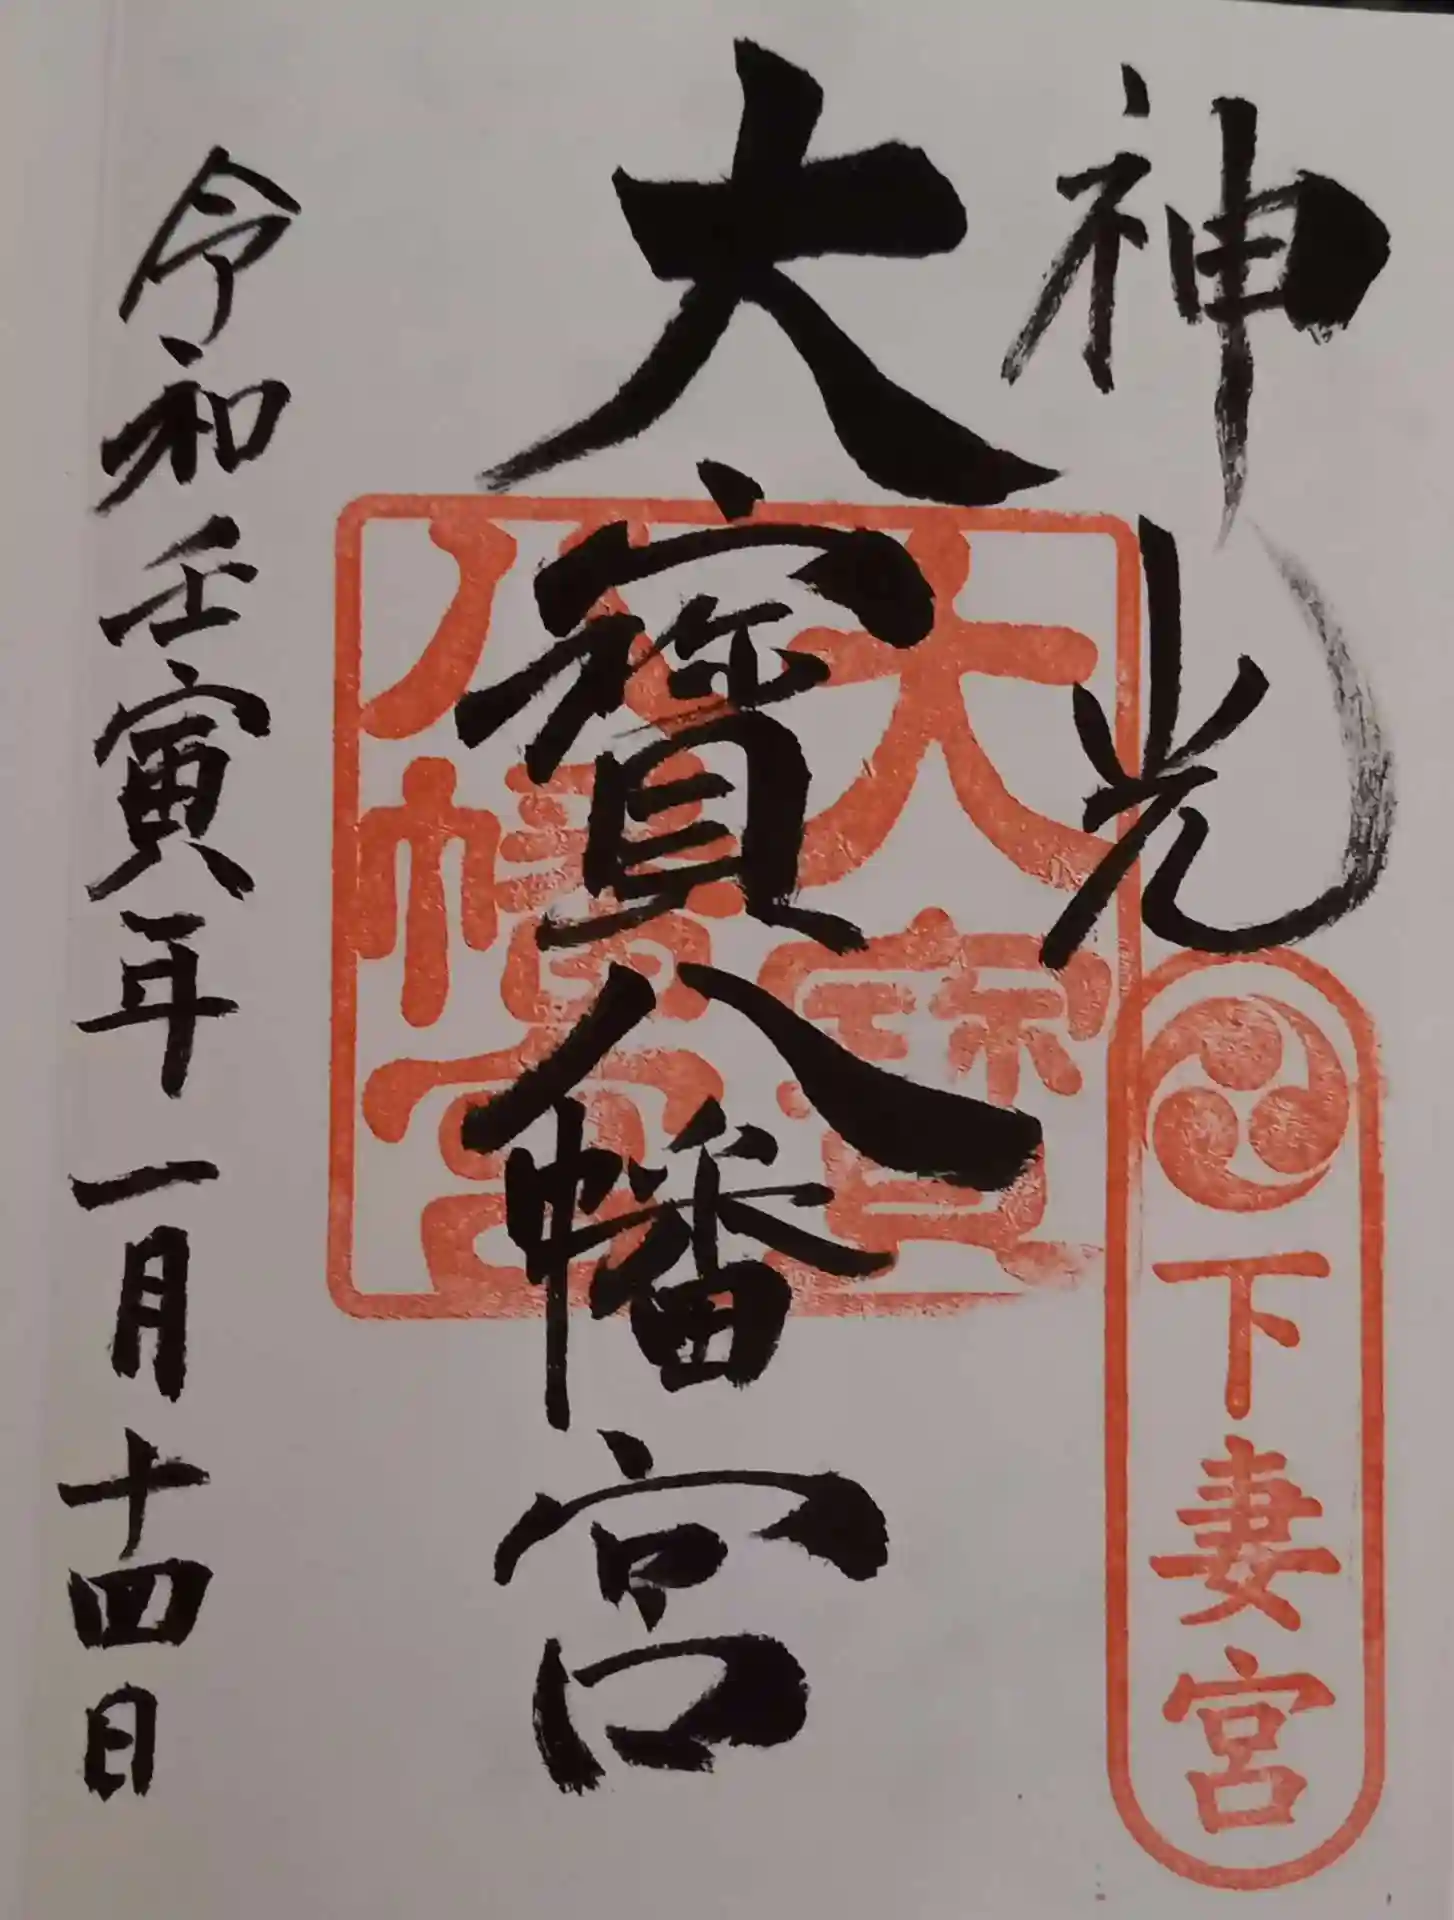 神光
下妻宮
大寳八幡宮
大寳
八幡宮
令和壬寅年一月十四日